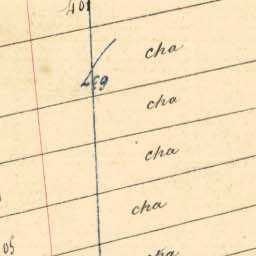 401
cha
cha
cha
cha
05
cha